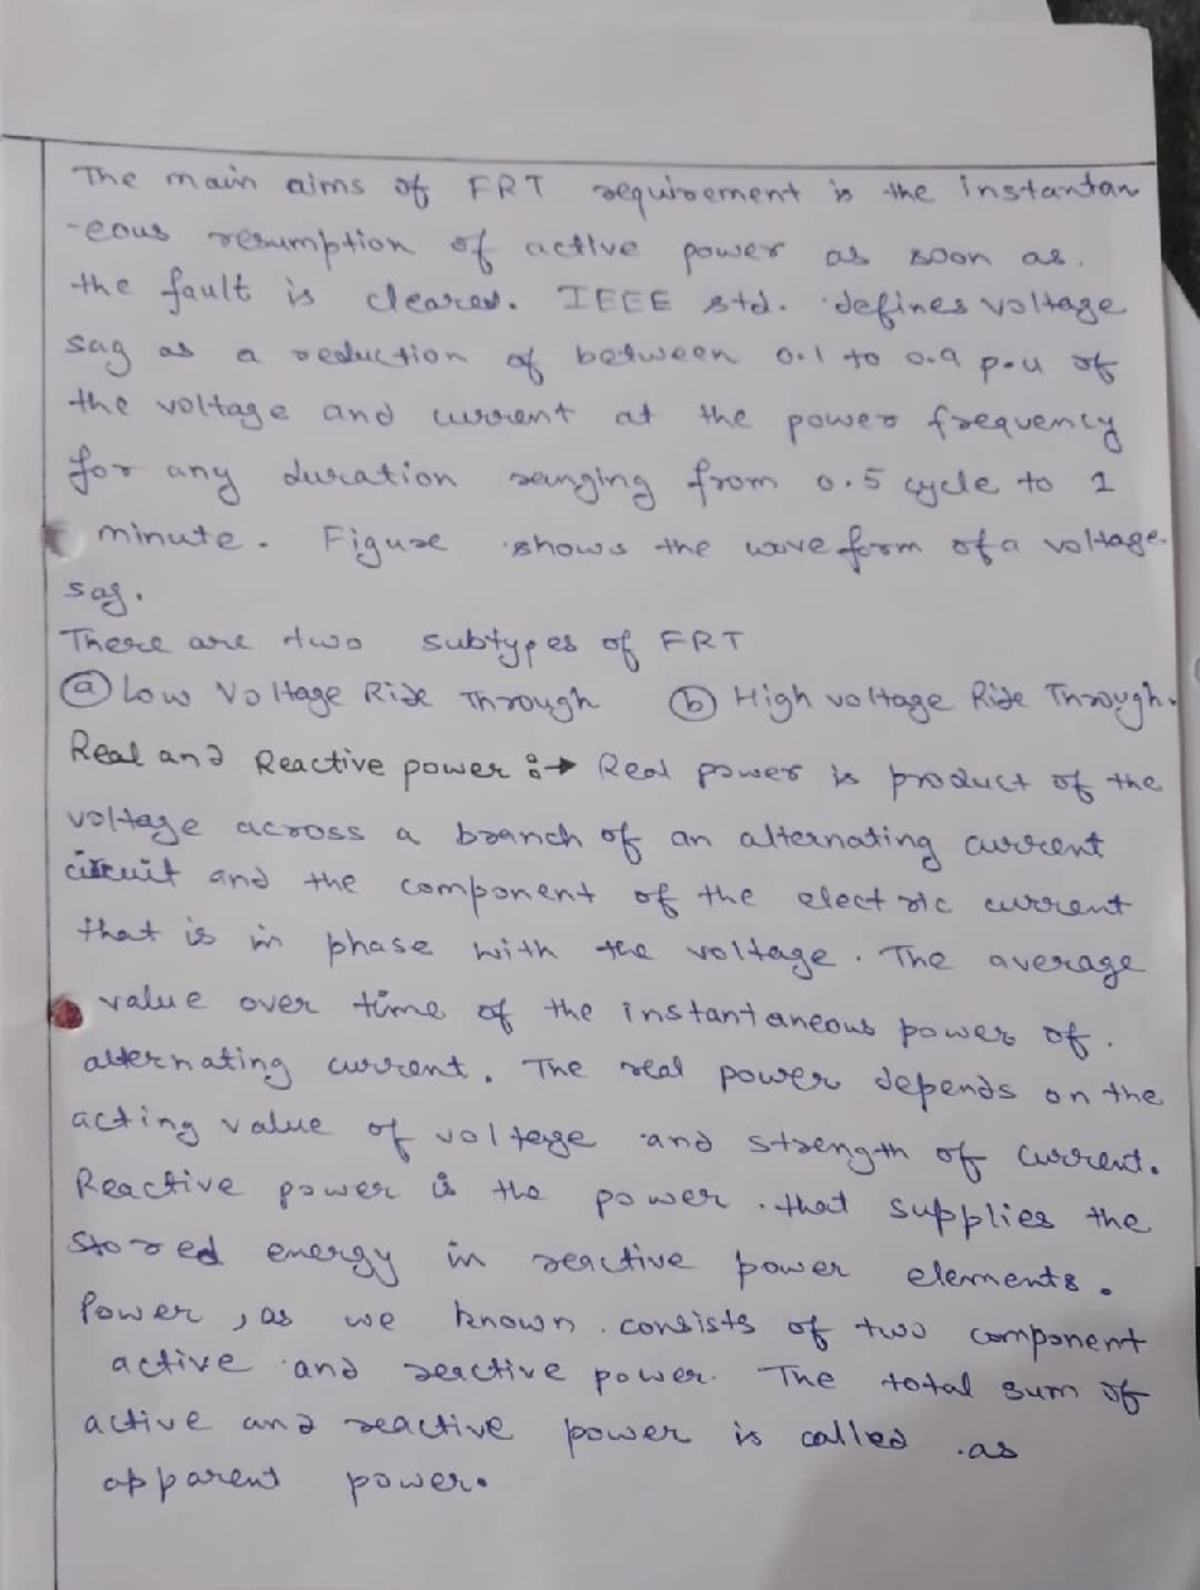 The main aims of FRT requirement is the instantan
-eous resumption of active power as soon as.
the fault is cleared. IEEE std. defines voltage
sag as a reduction of between 0.1 to 0.9 p.u of
the voltage and current at the power frequency
for any duration ranging from 0.5 cycle to 1
minute. Figure shows the waveform of a voltage
sag.
There are two subtypes of FRT
ⓐ Low Voltage Ride Through ⓑ High voltage Ride Through.
Real and Reactive power :→ Real power is product of the
voltage across a branch of an alternating current
circuit and the component of the electric current
that is in phase with the voltage. The average
value over time of the instantaneous power of.
alternating current. The real power depends on the
acting value of voltage and strength of current.
Reactive power is the power that supplies the
stored energy in reactive power elements.
Power, as we known consists of two component
active and reactive power. The total sum of
active and reactive power is called as
apparent power.